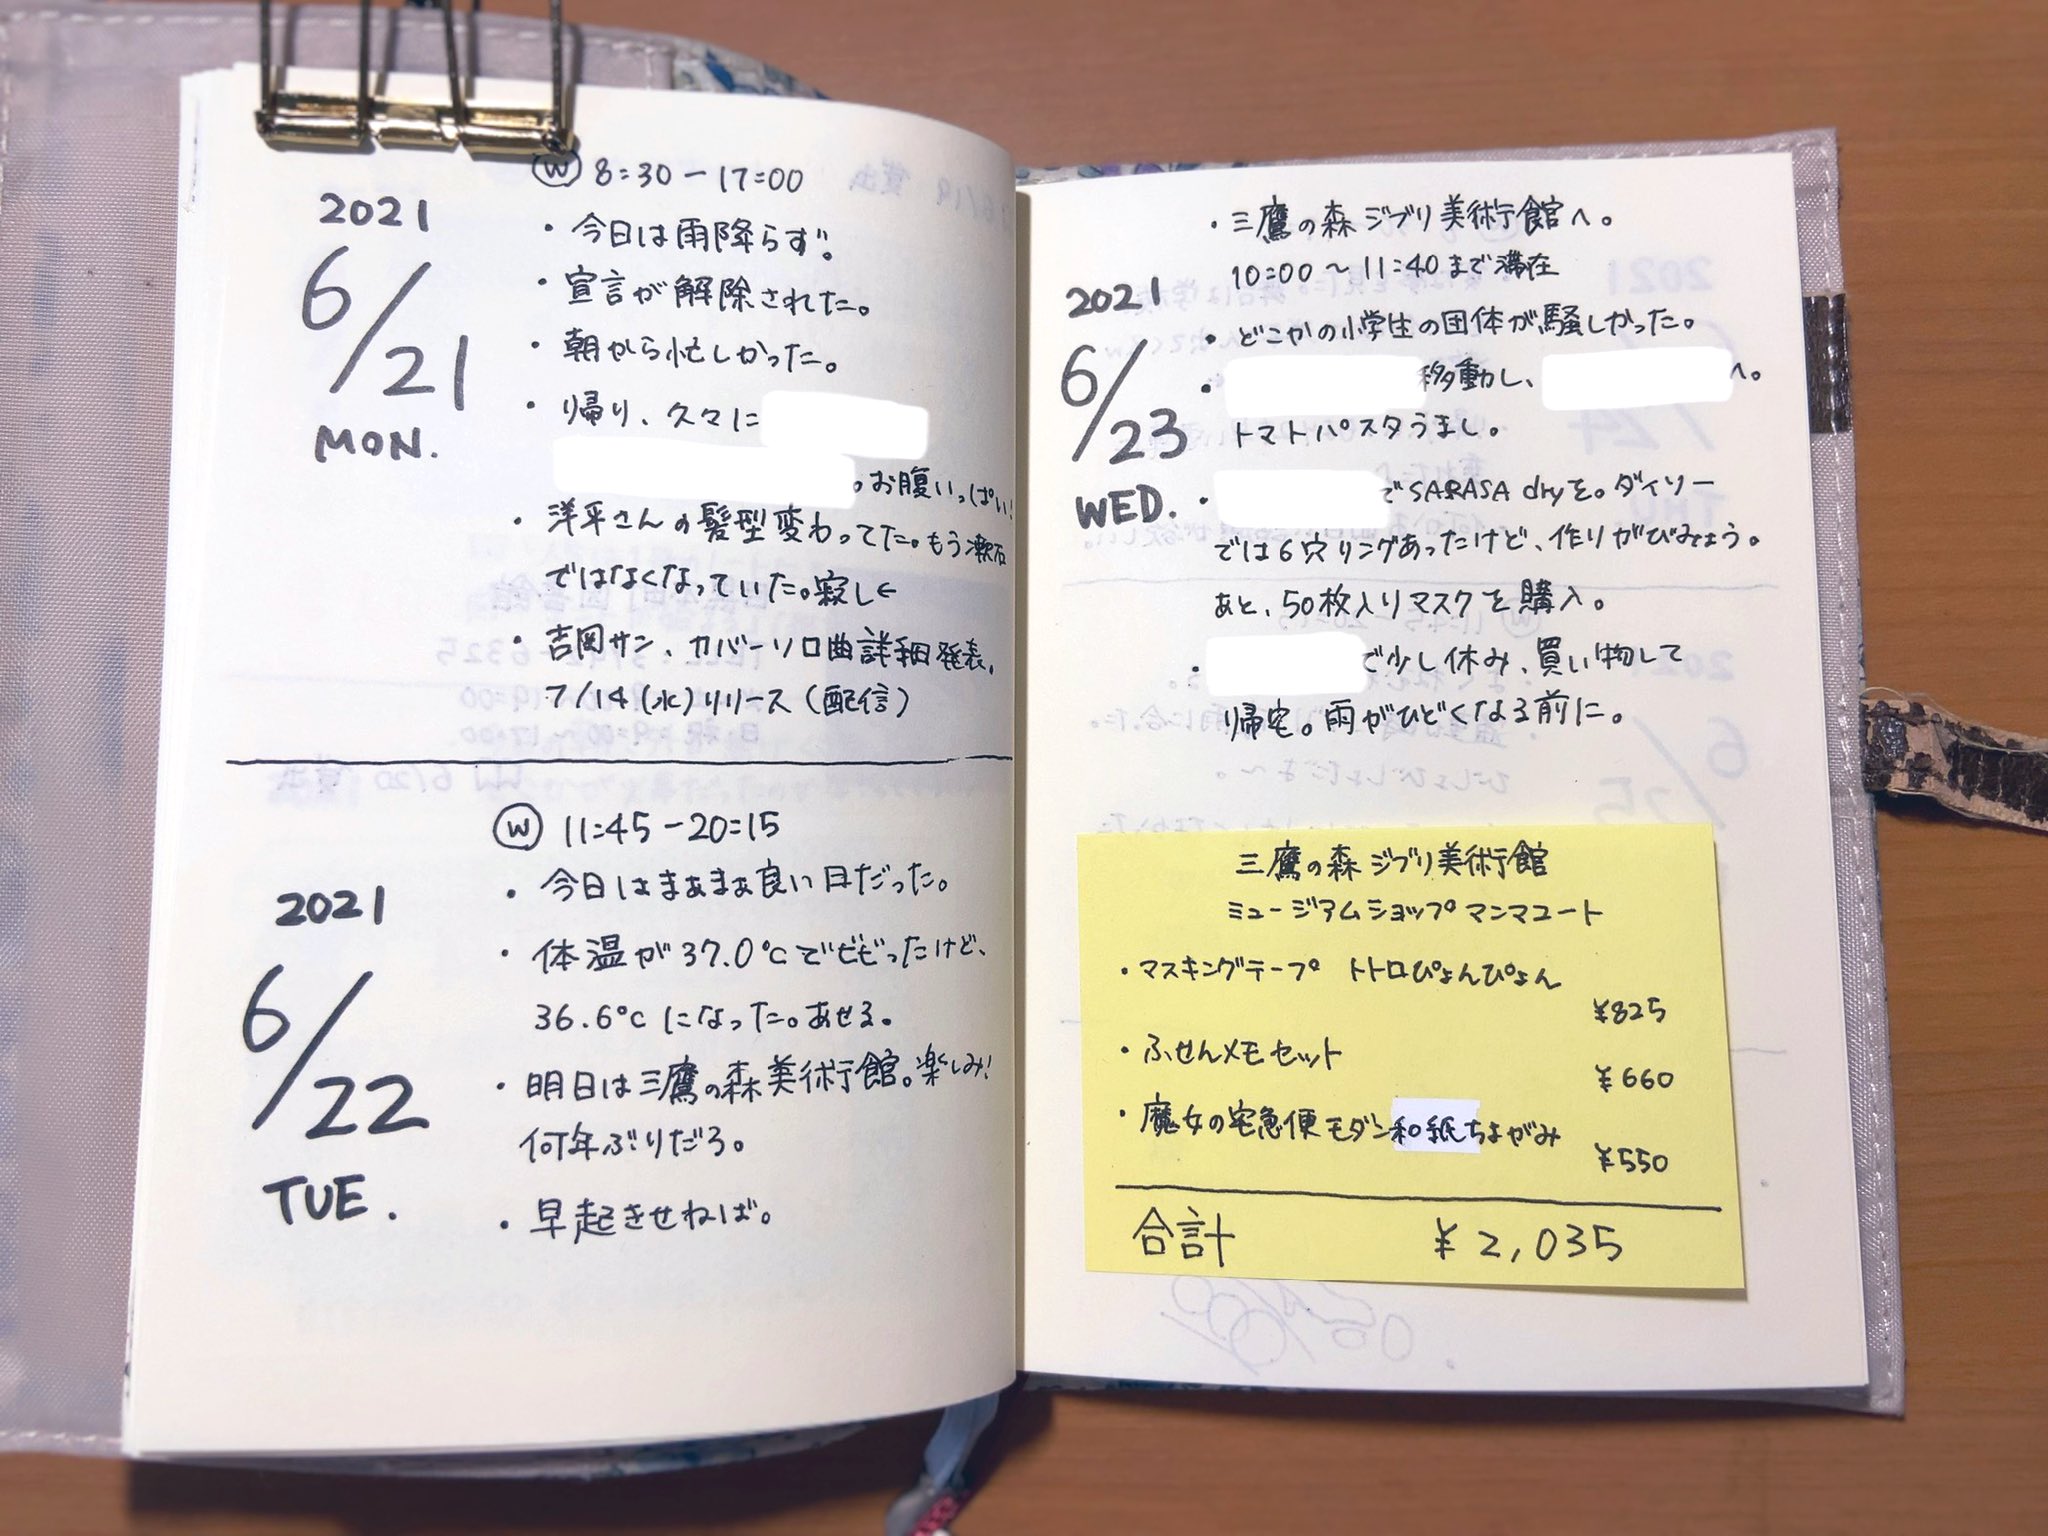 2021
6/21
MON.
W 8:30-17:00
・今日は雨降らず。
・宣言が解除された。
・朝から忙しかった。
・帰り、久々に
。お腹いっぱい!
・洋平さんの髪型変わってた。もう漱石
ではなくなっていた。寂し←
・吉岡サン、カバーソロ曲詳細発表。
7/14(水)リリース(配信)
2021
6/22
TUE.
W 11:45-20:15
・今日はまぁまぁ良い日だった。
・体温が37.0℃でビビったけど、
36.6℃になった。あせる。
・明日は三鷹の森美術館。楽しみ!
何年ぶりだろ。
・早起きせねば。
2021
6/23
WED.
・三鷹の森ジブリ美術館へ。
10:00〜11:40まで滞在
・どこかの小学生の団体が騒しかった。
・移動し、へ。
トマトパスタうまし。
・でSARASA dryを。ダイソー
では6穴リングあったけど、作りがびみょう。
あと、50枚入りマスクを購入。
・で少し休み、買い物して
帰宅。雨がひどくなる前に。
三鷹の森ジブリ美術館
ミュージアムショップマンマユート
・マスキングテープ トトロぴょんぴょん
¥825
・ふせんメモセット
¥660
・魔女の宅急便モダン和紙ちよがみ
¥550
合計 ¥2,035